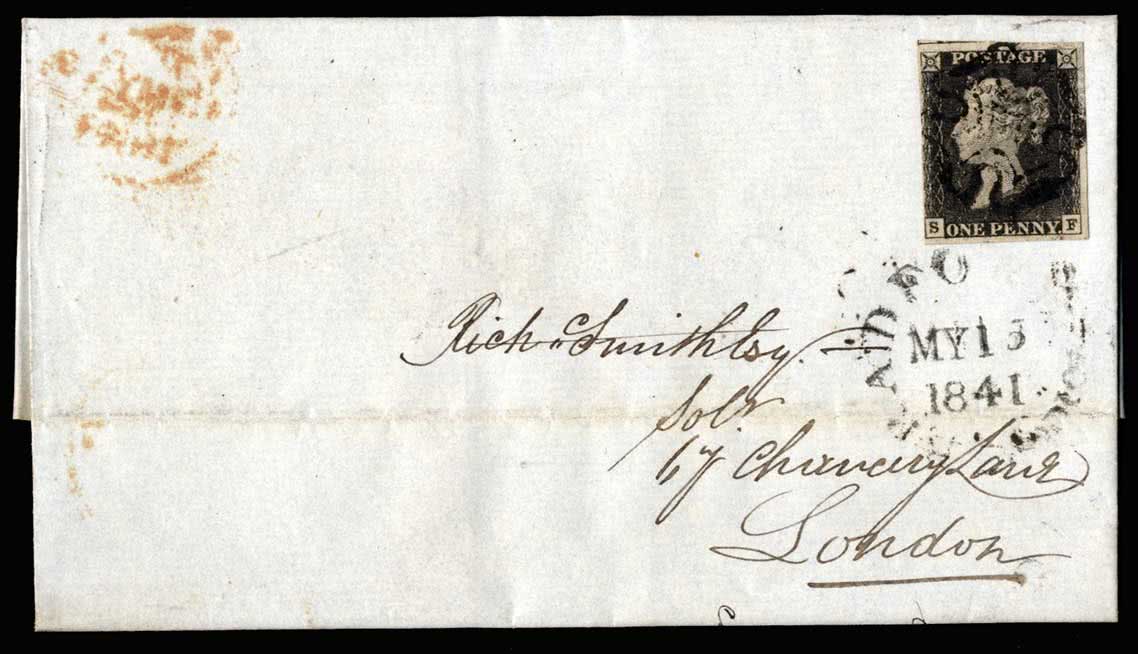 POSTAGE
S ONE PENNY F
MY 15
1841
Richd Smith Esqr
Solr
67 Chancery Lane
London